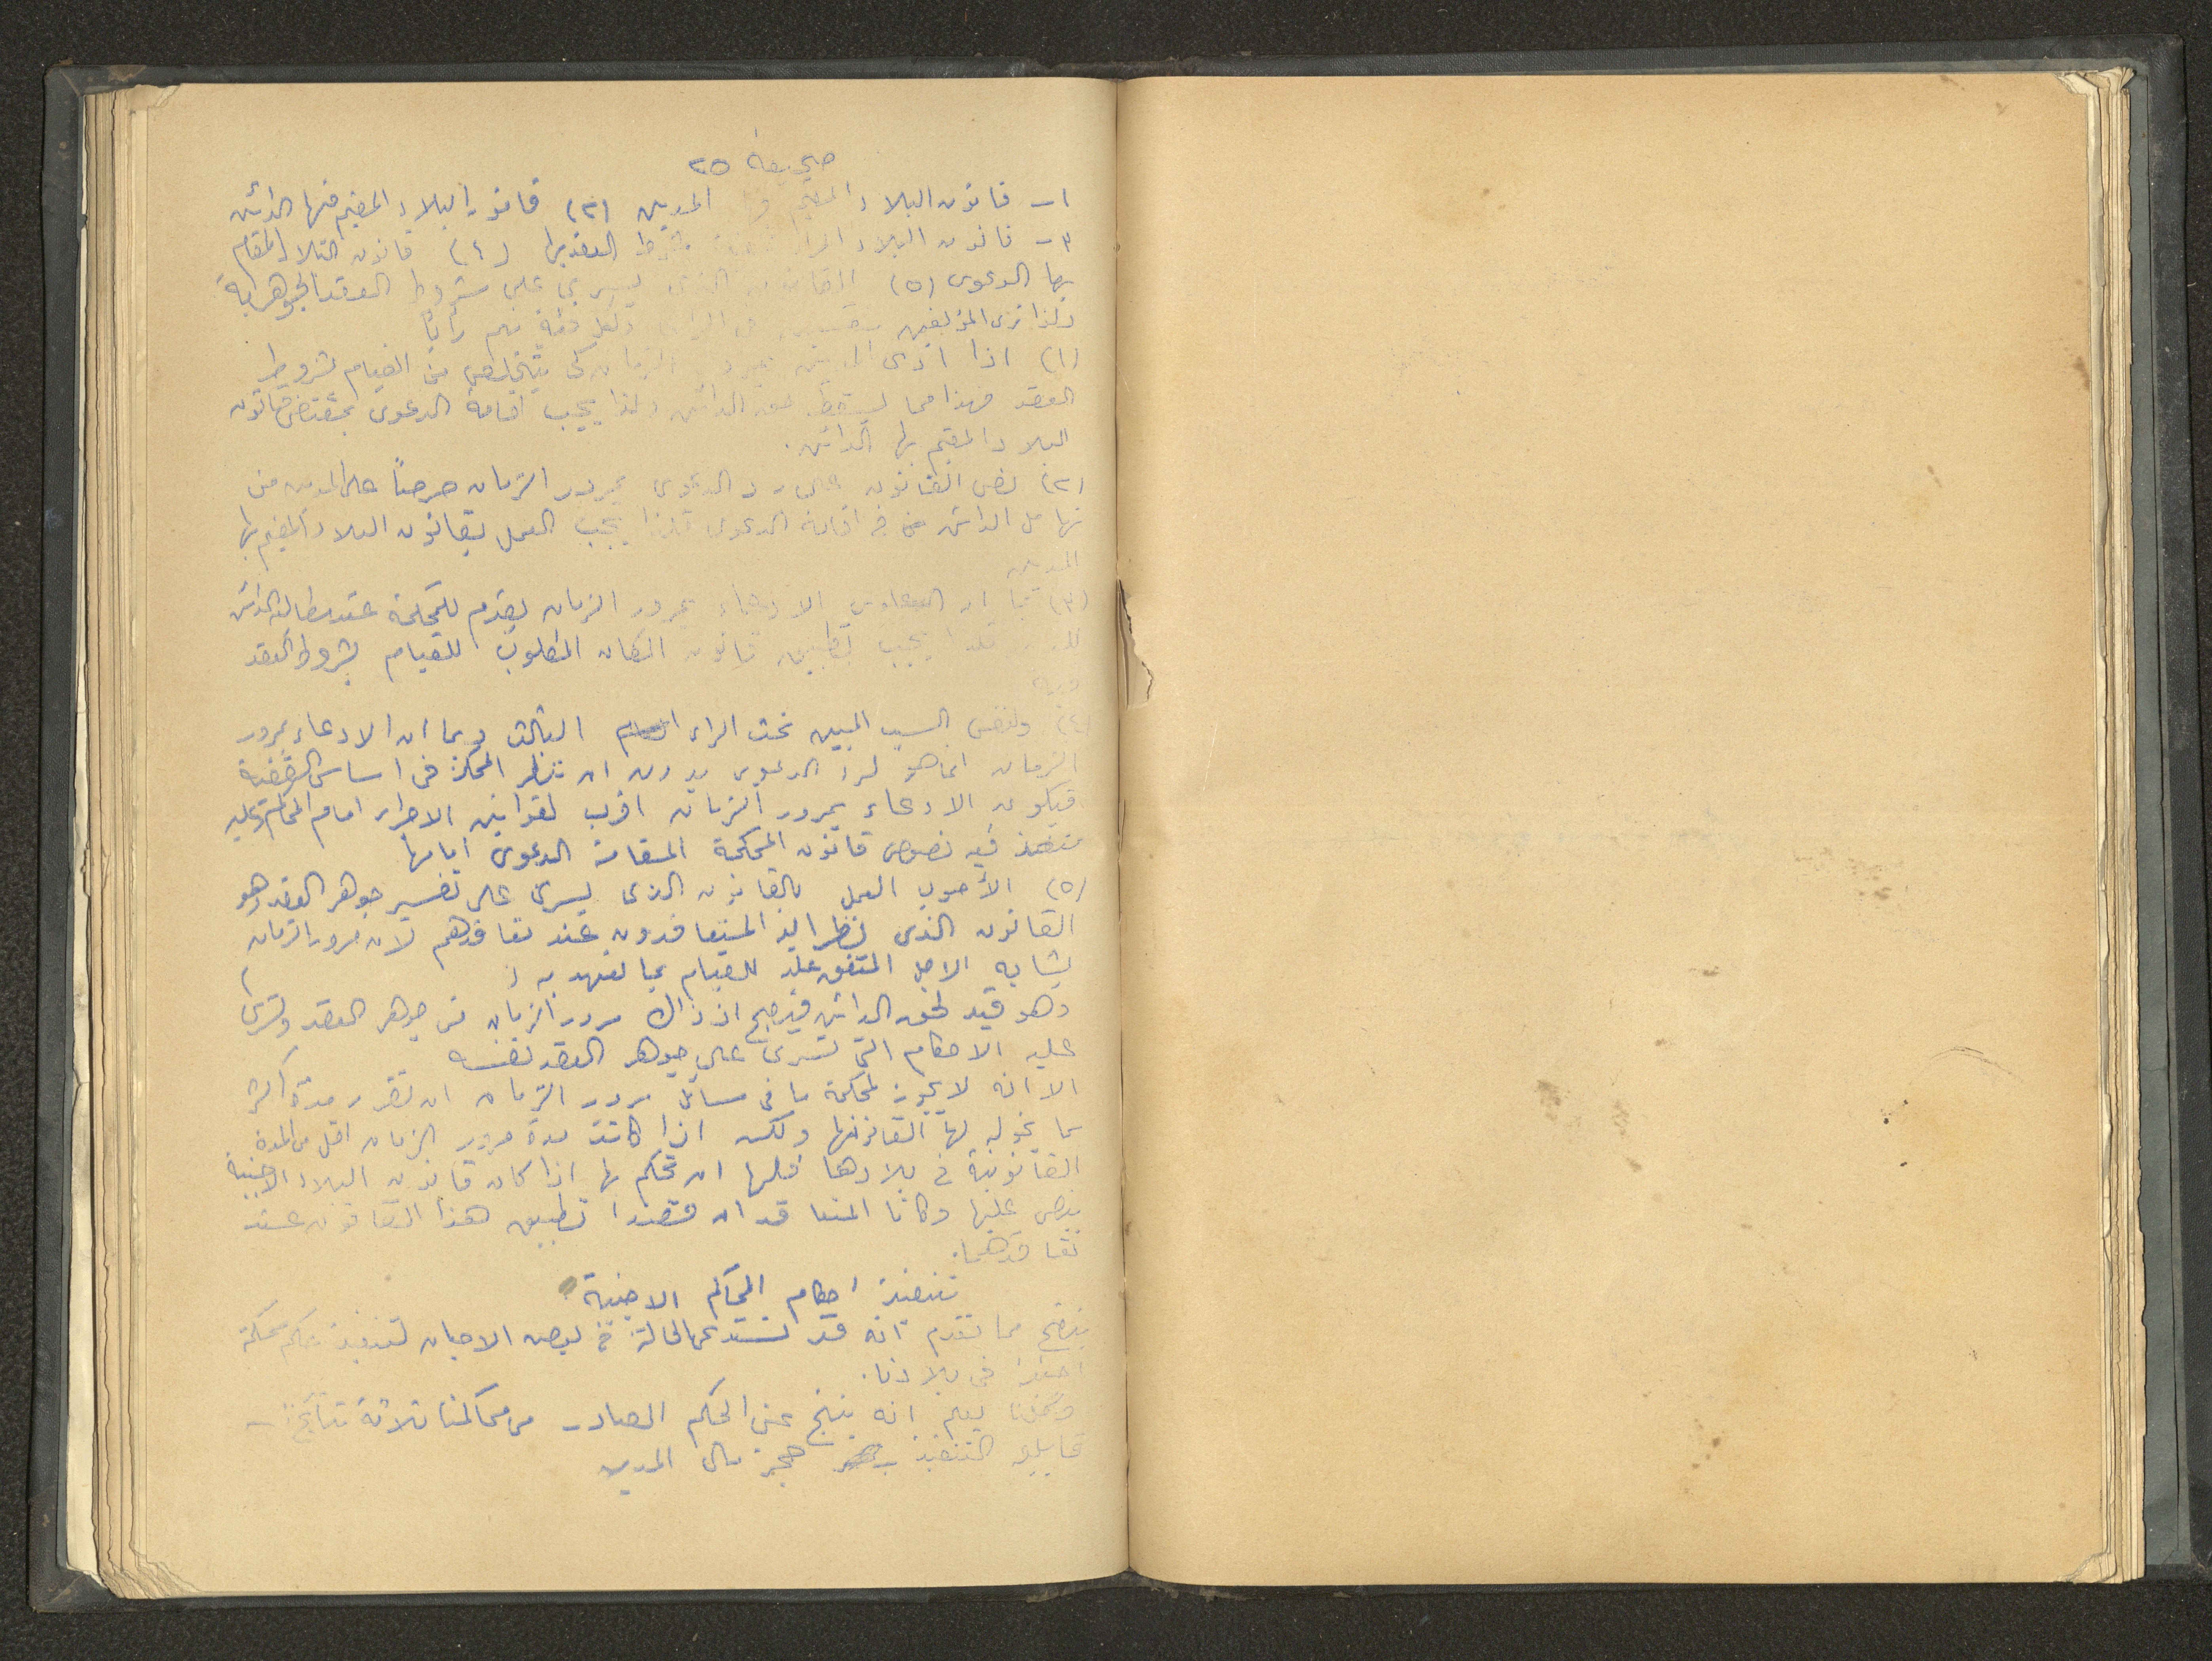 صحيفة ٢٥
١- قانون البلاد المقيم فيها المدين (٢) قانون البلاد المقيم فيها الدائن
٣- قانون البلاد المراد شروط العقد بها (٤) قانون البلاد المقام
بها الدعوى (٥) القانون الذى يسرى على شروط العقد الجوهرية
ولذا نرى المؤلفين منقسمين فى الرأى ولكل فئة منهم رأيا
(١) اذا ادعى المدين بمرور الزمان كى يتخلص من القيام بشروط
العقد فهذا مما يسقط حق الدائن ولذا يجب اقامة الدعوى بمقتضى قانون
البلاد المقيم بها الدائن.
(٢) نص القانون على رد الدعوى بمرور الزمان حرصاً على المدين من
تهامل الدائن فى اقامة الدعوى فلذا يجب العمل بقانون البلاد المقيم بها
المدين
(٣) بما ان الادعاء بمرور الزمان يقدم للمحكمة عند مطالبة الدائن
فلذا يجب تطبيق قانون المكان المطلوب للقيام بشروط العقد
فيه
(٤) ولنفس السبب المبين تحت الراى الثالث وبما ان الادعاء بمرور
الزمان انما هو لرد الدعوى بدون ان تنظر المحكمة فى اساس القضية
فيكون الادعاء بمرور الزمان اقرب لقوانين الاجراء امام المحاكم وعليه
فيه نصوص قانون المحكمة المقامة الدعوى امامها
(٥) الأصوب العمل بالقانون الذى يسرى على تفسير جوهر العقد وهو
القانون الذى نظر اليه المتعاقدون عند تعاقدهم لان مرور الزمان
يشابه الاجل المتفق عليه للقيام بما تعهد به
وهو قيد لحق الدائن فيصبح اذ ذاك مرور الزمان من جوهر العقد وتسرى
عليه الاحكام التى تسرى على جوهر العقد نفسه
الا انه لا يجوز لمحكمة ما فى مسائل مرور الزمان ان تقرر مدة اكثر
مما يخوله لها القانونها ولكن اذا كانت مدة مرور الزمان اقل من المدة
القانونية فى بلادها فلها ان تحكم بها اذا كان قانون البلاد الاجنبية
ينص عليها وكانا المتعاقدان قصدا تطبيق هذا القانون عند
تعاقدهما.
تنفيذ احكام المحاكم الاجنبية
يتضح مما تقدم انه قد تستدعى الحالة فى بعض الاحيان لتنفيذ حكم محكمة
اجنبية فى بلادنا.
وكلنا يعلم انه ينتج عن الحكم الصادر من محاكمنا ثلاثة نتائج: -
التنفيذ حجز مال المدين